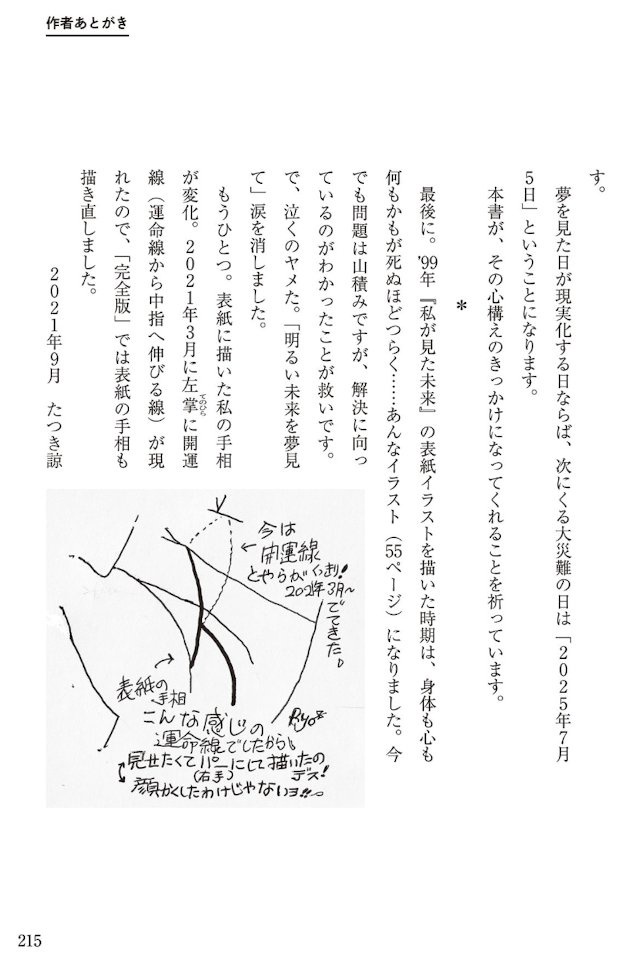 作者あとがき
す。
　夢を見た日が現実化する日ならば、次にくる大災難の日は「2025年7月
5日」ということになります。
　本書が、その心構えのきっかけになってくれることを祈っています。
＊
　最後に。'99年『私が見た未来』の表紙イラストを描いた時期は、身体も心も
何もかもが死ぬほどつらく……あんなイラスト（55ページ）になりました。今
でも問題は山積みですが、解決に向っ
ているのがわかったことが救いです。
で、泣くのヤメた。「明るい未来を夢見
て」涙を消しました。
　もうひとつ。表紙に描いた私の手相
が変化。2021年3月に左掌に開運
てのひら
線（運命線から中指へ伸びる線）が現
れたので、「完全版」では表紙の手相も
描き直しました。
2021年9月　たつき諒
今は
←開運線
とやらが
2021年3月〜
でてきた。
表紙の→
手相
こんな感じの
運命線でしたから
見せたくてパーにして描いたの
(右手)デス!
顔かくしたわけじゃないヨ!!
215